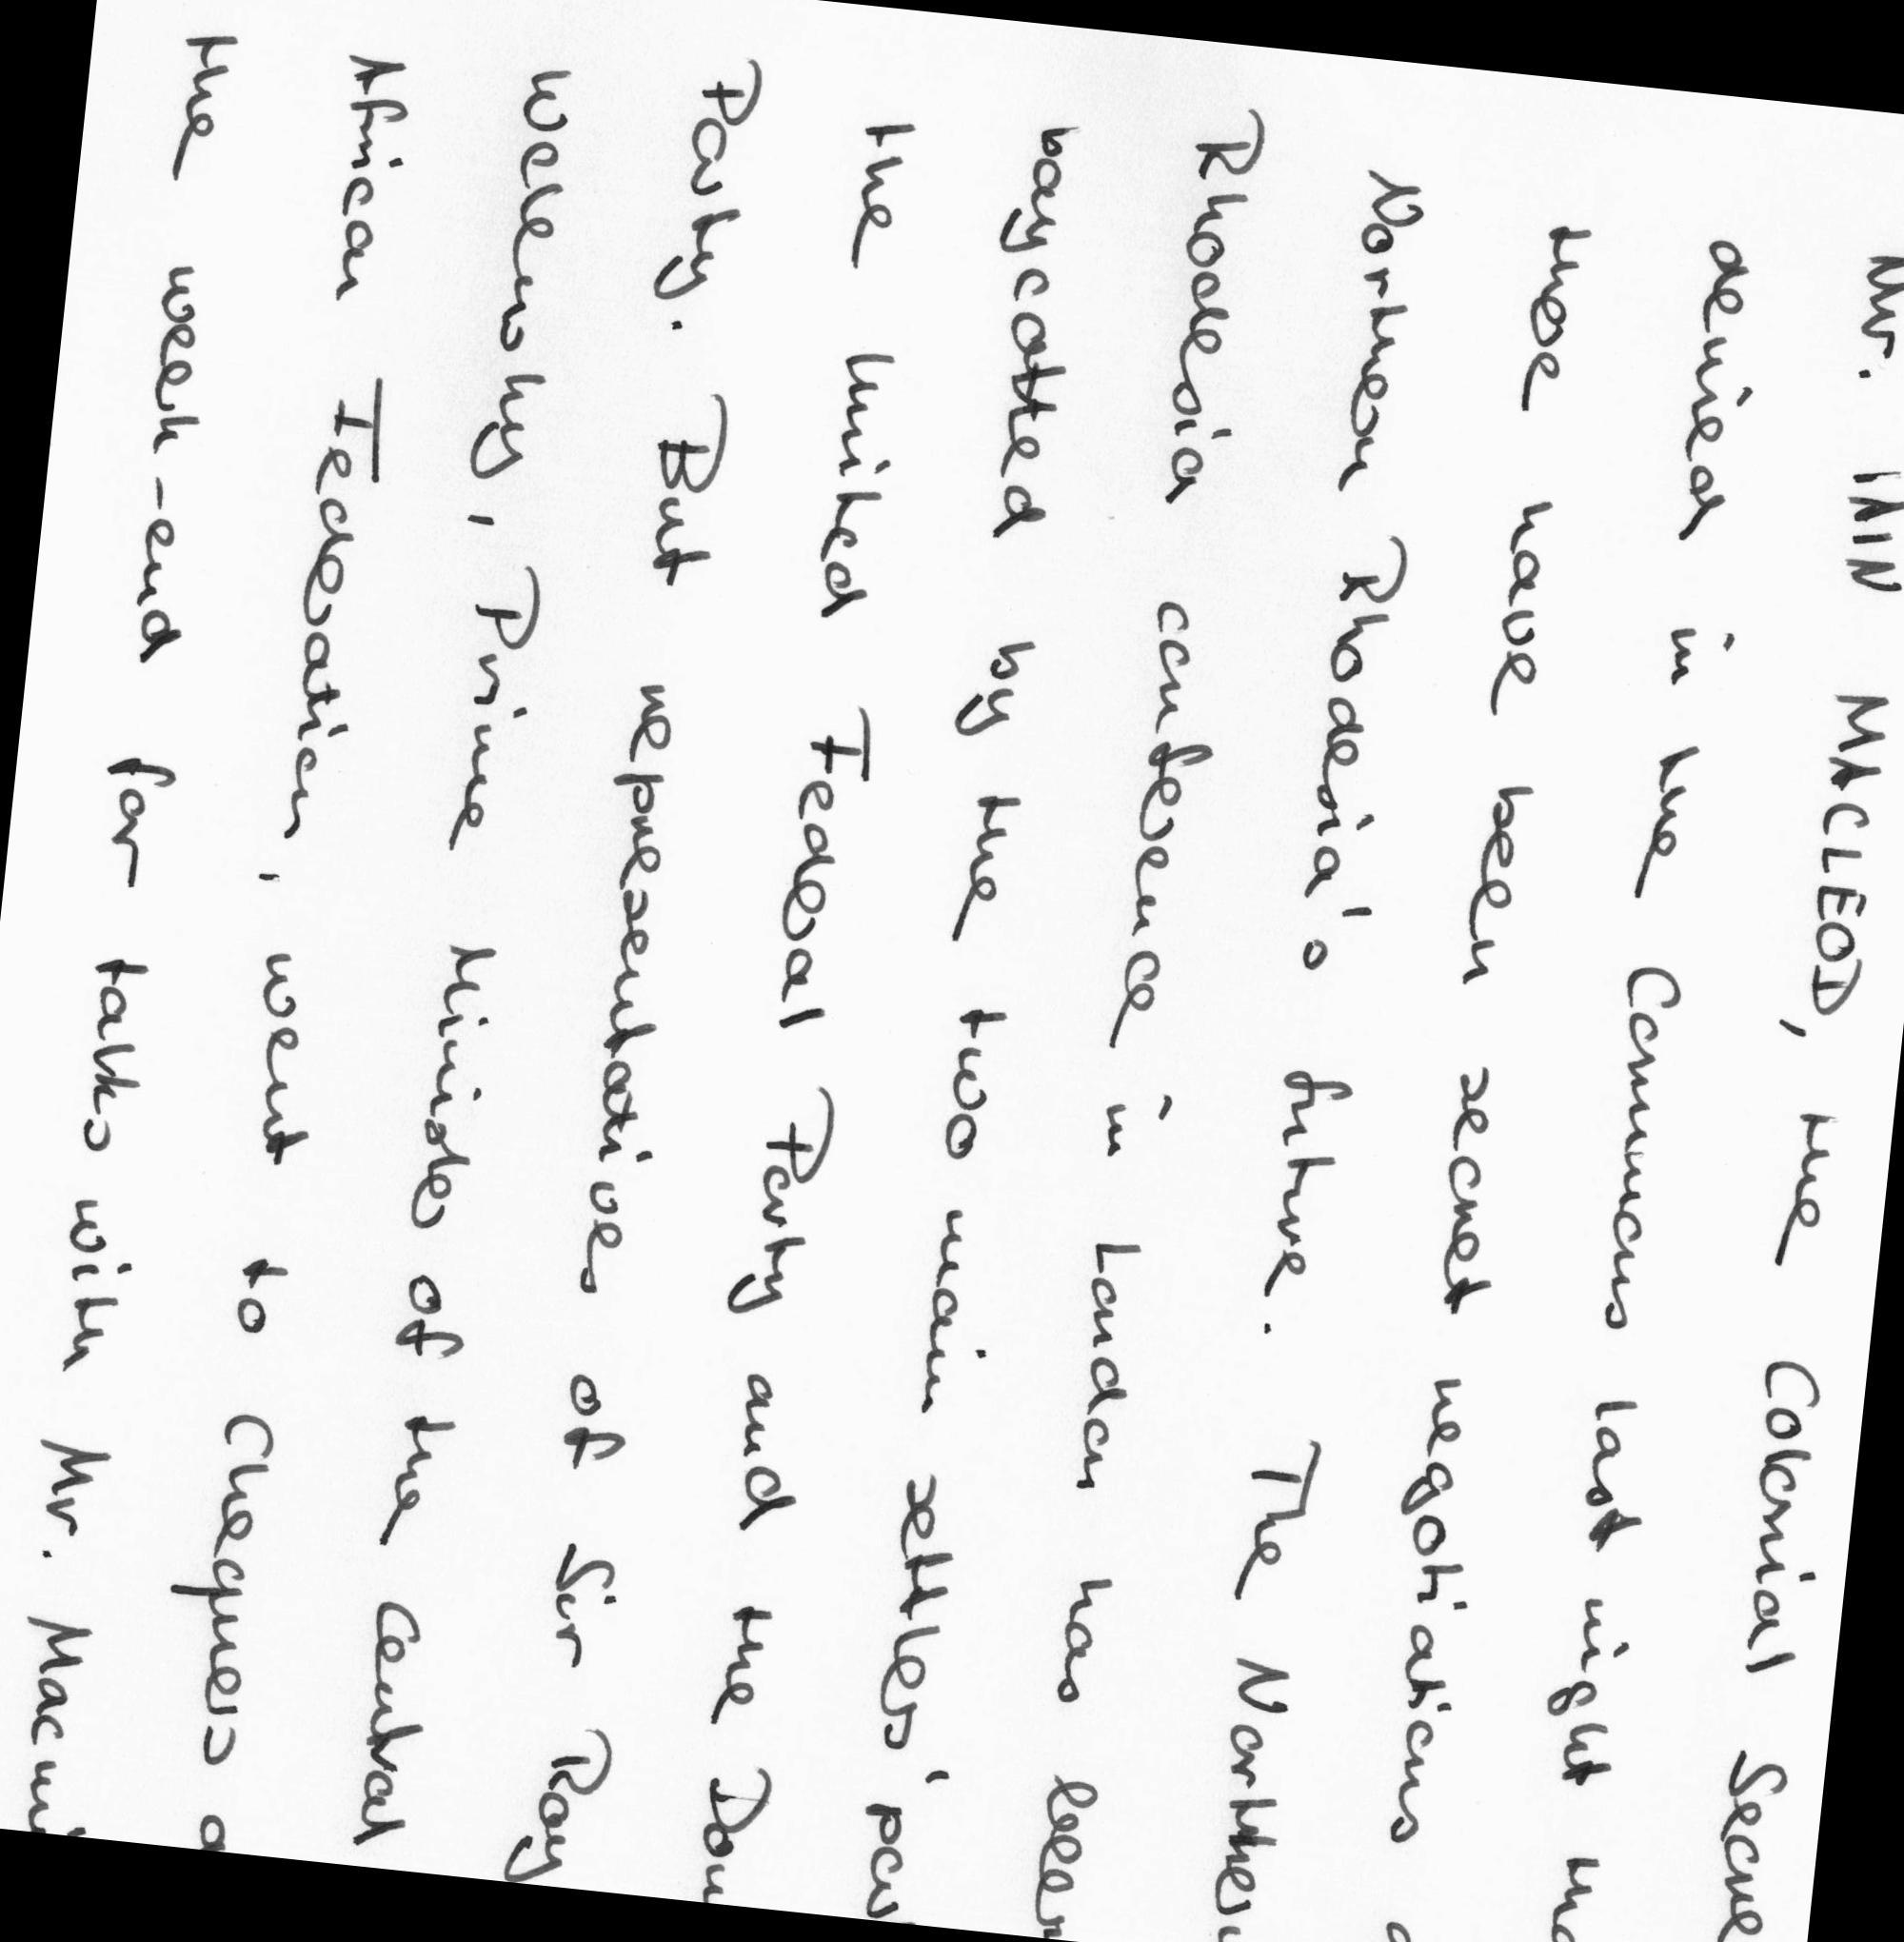 Mr. IAIN MACLEOD, the Colonial Secre
denied in the Commons last night tha
there have been secret negotiations o
Northern Rhodesia's future. The Northern
Rhodesia conference in London has been
boycotted by the two main settlers' par
the United Federal Party and the Dom
Party. But representatives of Sir Roy
Welensky, Prime Minister of the Central
African Federation, went to Chequers a
the week-end for talks with Mr. Macmi